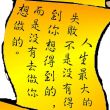 人生最大的
失敗不是沒有得
到你想得到的，
而是沒有去做你
想做的。